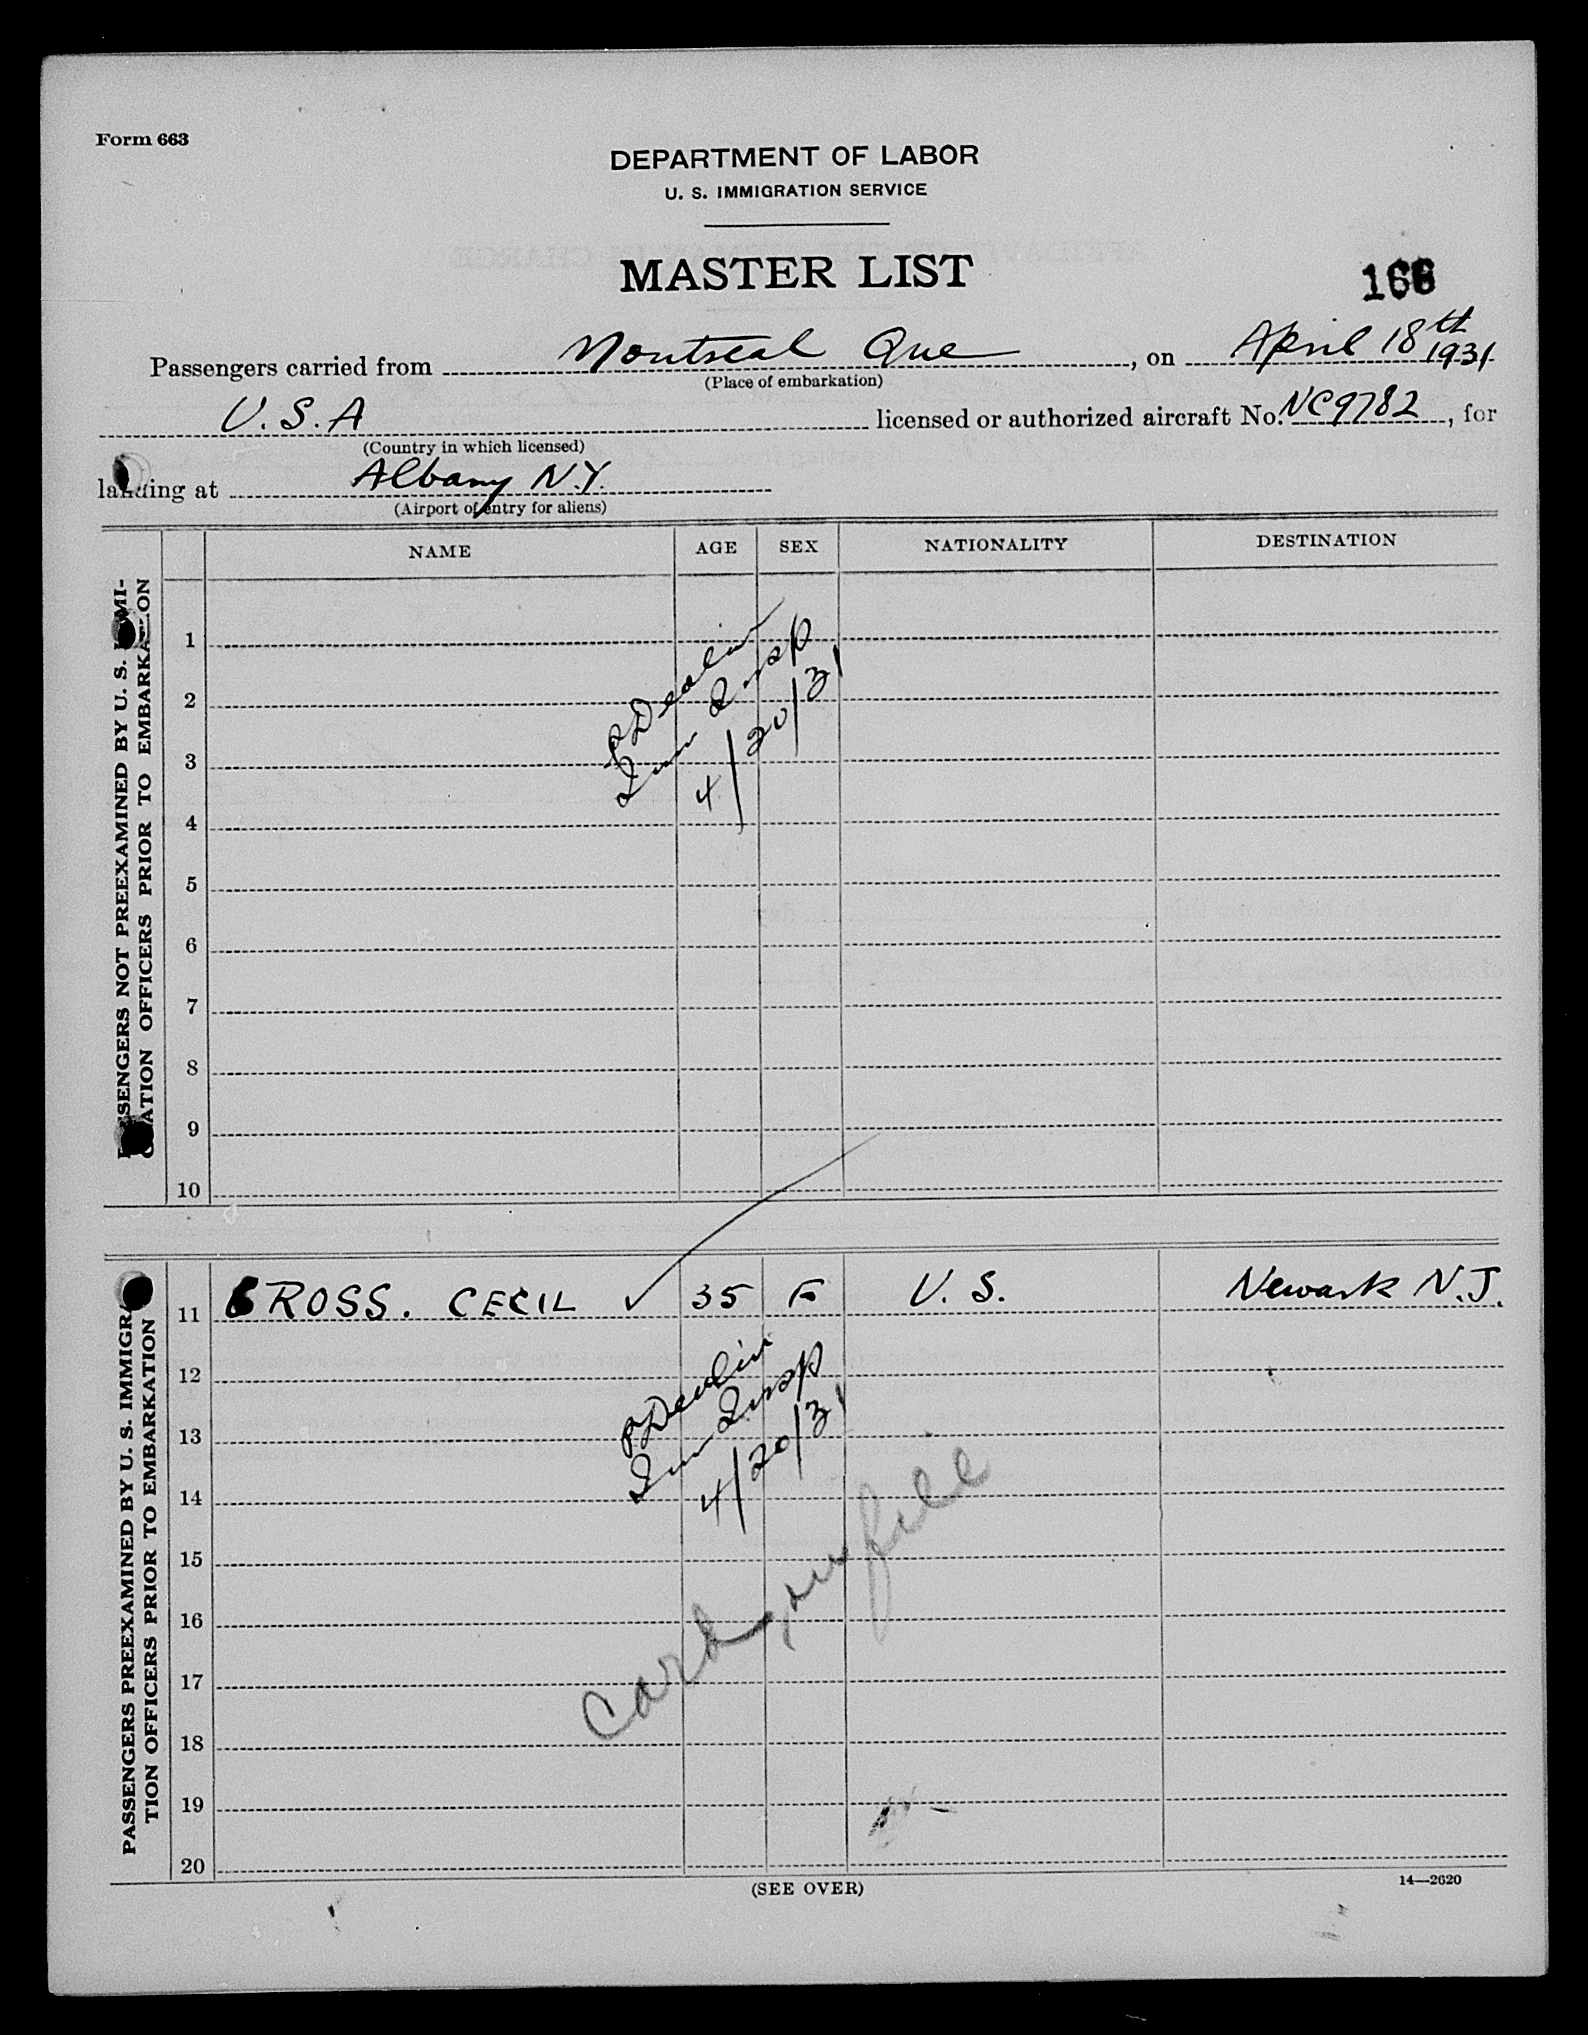 Form 663
DEPARTMENT OF LABOR
U. S. IMMIGRATION SERVICE
MASTER LIST
166
Passengers carried from Montreal Que, on April 18th 1931
U.S.A licensed or authorized aircraft No. NC9782, for
(Place of embarkation)
(Country in which licensed)
landing at Albany N.Y.
(Airport of entry for aliens)
NAME AGE SEX NATIONALITY DESTINATION
PASSENGERS NOT PREEXAMINED BY U. S. IMMI-
GRATION OFFICERS PRIOR TO EMBARKATION
1
2
3
4
5
6
7
8
9
10
P Devlin
Imm Insp
4/20/31
PASSENGERS PREEXAMINED BY U. S. IMMIGRA-
TION OFFICERS PRIOR TO EMBARKATION
11 GROSS. CECIL ✓ 35 F U. S. Newark N.J.
12
13
14
15
16
17
18
19
20
P Devlin
Imm Insp
4/20/31
Card on file
(SEE OVER)
14—2620